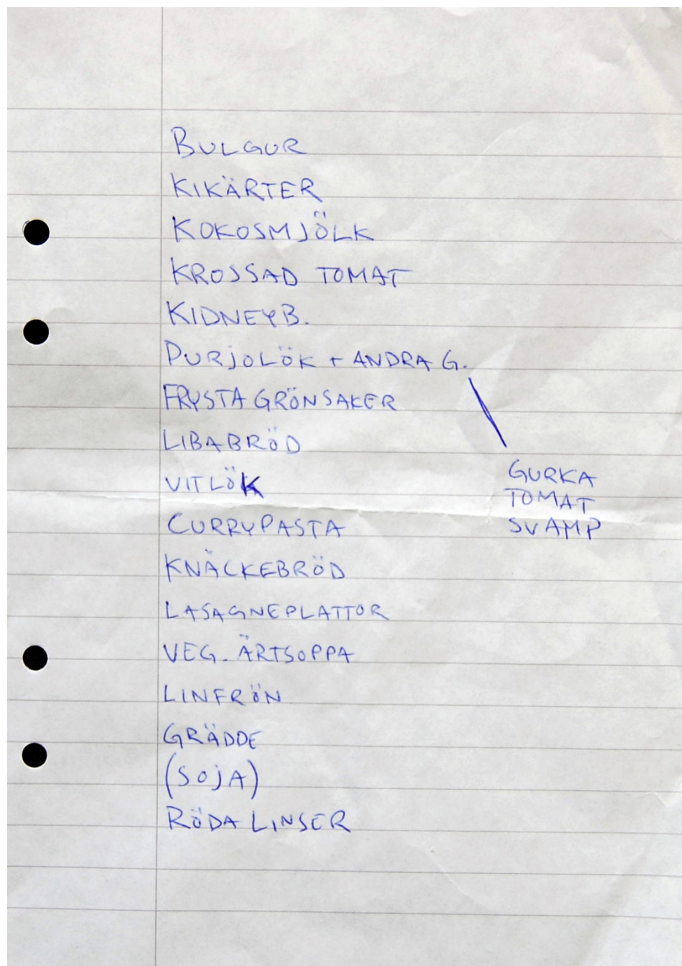 BULGUR
KIKÄRTER
KOKOSMJÖLK
KROSSAD TOMAT
KIDNEYB.
PURJOLÖK + ANDRA G.
FRYSTA GRÖNSAKER
LIBABRÖD
VITLÖK
GURKA
TOMAT
SVAMP
CURRYPASTA
KNÄCKEBRÖD
LASAGNEPLATTOR
VEG. ÄRTSOPPA
LINFRÖN
GRÄDDE
(SOJA)
RÖDA LINSER